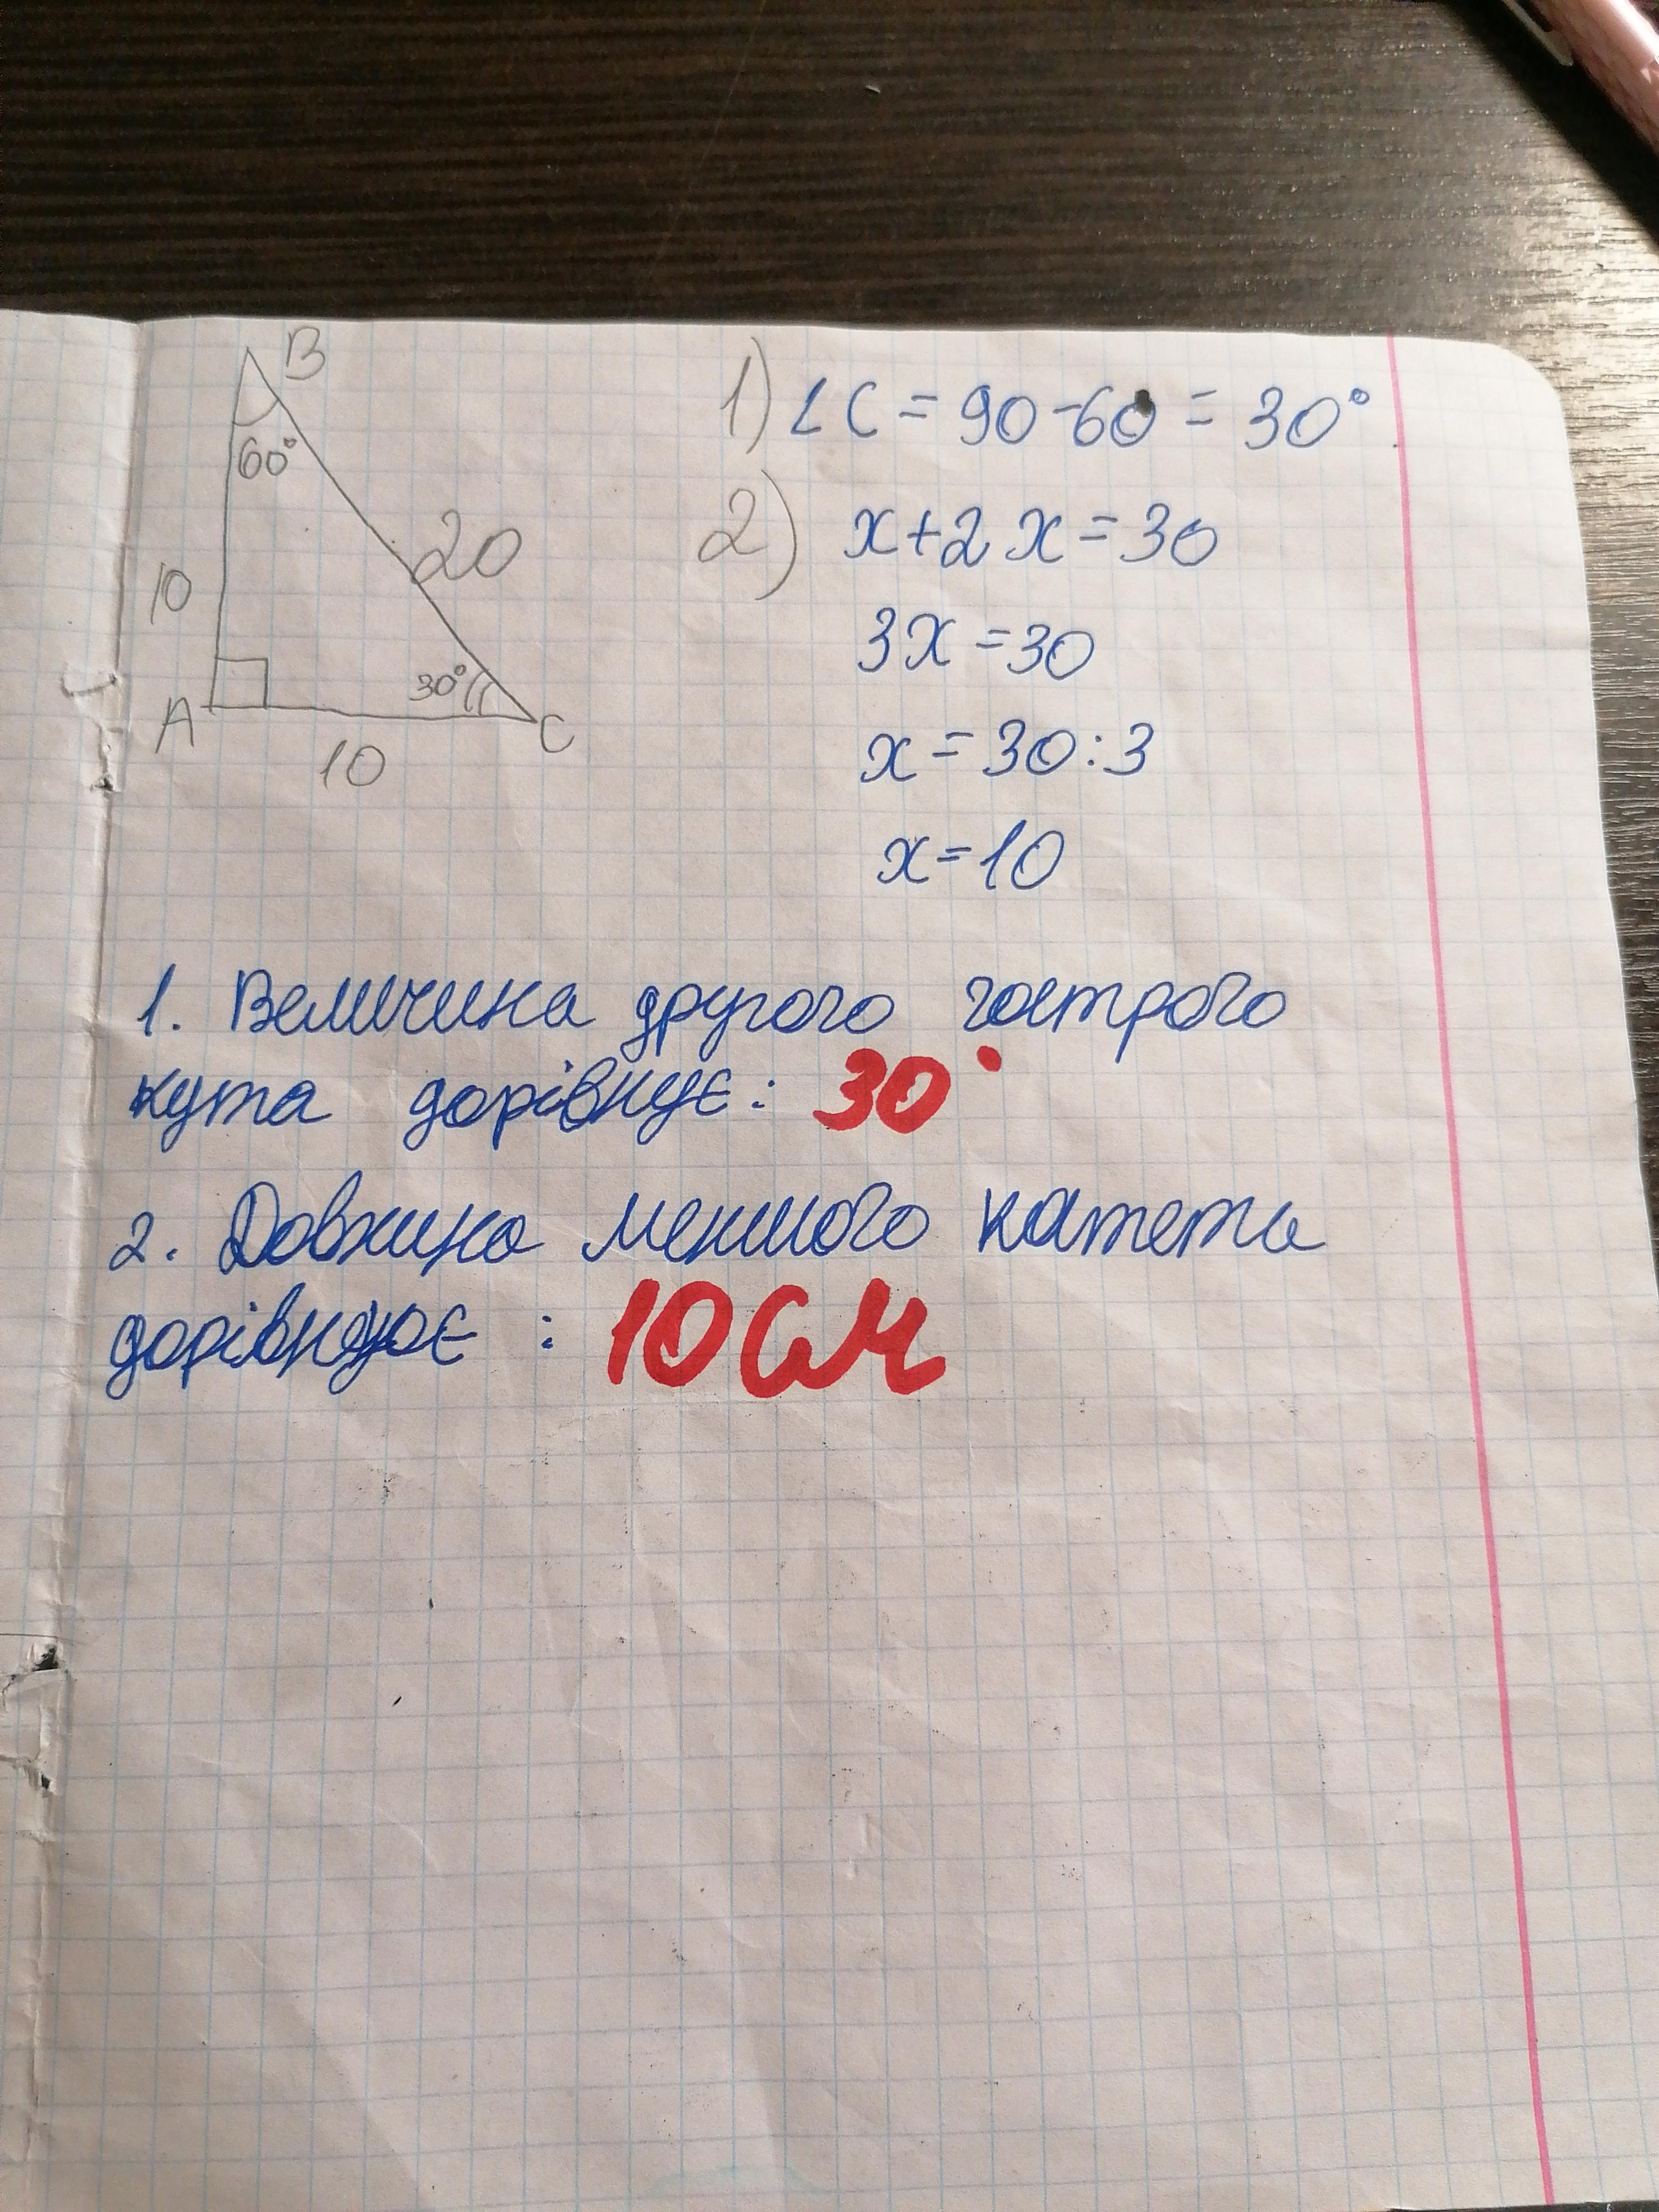 B
60°
20
10
30°
A
C
10
1) ∠C = 90-60 = 30°
2) x+2x=30
3x=30
x=30:3
x=10
1. Величина другого гострого
кута дорівнує: 30°
2. Довжина меншого катета
дорівнює : 10 см